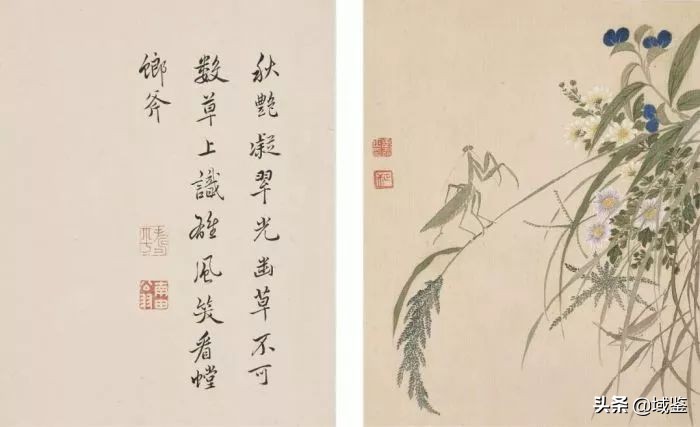 秋艷凝翠光幽草不可
數草上識雄風笑看螳
螂斧
头条 @域鉴